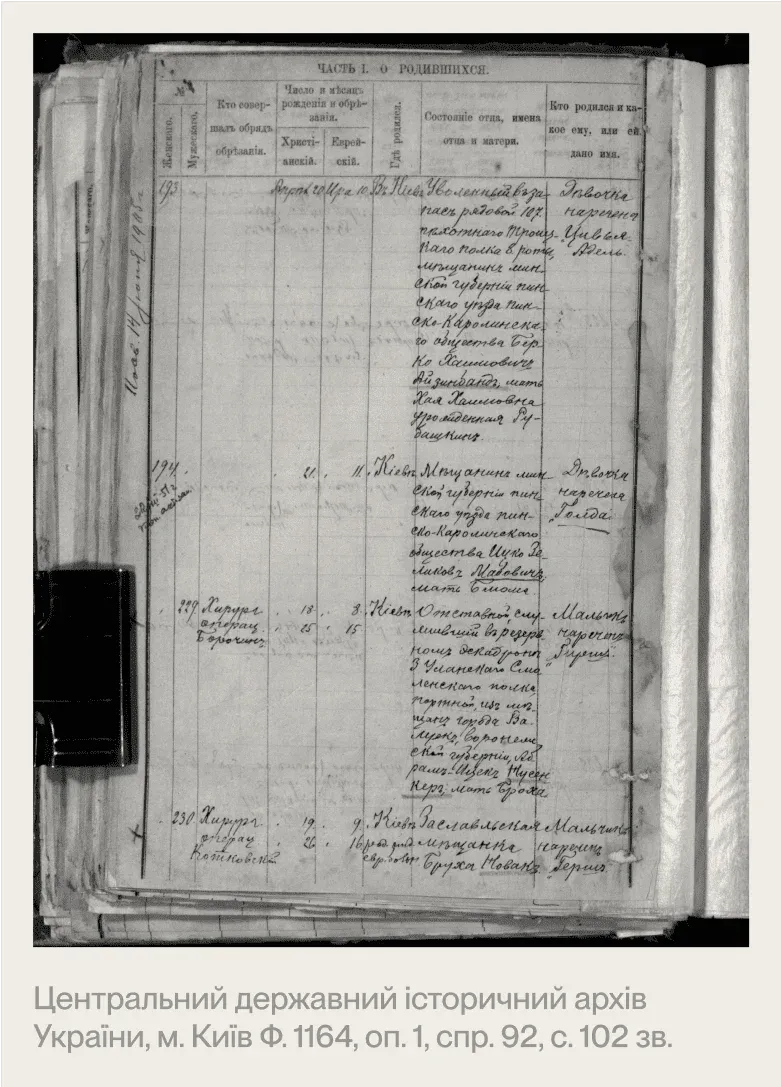 ЧАСТЬ I. О РОДИВШИХСЯ.
№
Женскаго.
Мужескаго.
Кто совер-
шалъ обрядъ
обрѣзанія.
Число и мѣсяцъ
рожденія и обрѣ-
занія.
Христі-
анскій.
Еврей-
скій.
Гдѣ родился.
Состояніе отца, имена
отца и матери.
Кто родился и ка-
кое ему, или ей
дано имя.
193
20
10
Въ Кіевѣ
Уволенный въ за-
пасъ рядовой 107
пѣхотнаго Троиц-
каго полка 8 роты,
мѣщанинъ мин-
ской губерніи пин-
скаго уѣзда пин-
ско-Каролинска-
го общества Бер-
ко Хаимовичъ
Айзинбандъ, мать
Хая Хаимовна
урожденная Ру-
башкинъ.
Дѣвочка
наречена
"Цивья-
Адель."
194.
21.
11.
Кіевѣ
Мѣщанинъ мин-
ской губерніи пин-
скаго уѣзда пин-
ско-Каролинскаго
общества Ицко Зе-
ликовъ
мать
Дѣвочка
наречена
"Голда"
229
Хирургъ
операц.
18
8.
25
15
Кіевѣ
Отставной слу-
жившій въ резерв-
номъ эскадронѣ
3 Уланскаго Смо-
ленскаго полка,
портной, изъ мѣ-
щанъ города Ва-
луекъ, Воронеж-
ской губерніи, Аб-
рамъ-Ицекъ Нусен-
керъ, мать Броха
Мальчикъ
нареченъ
230
Хирургъ
операц.
Котковскій
19.
9.
26
16
Кіевѣ
Заславльская
мѣщанка
Бруха Нованъ
Мальчикъ
нареченъ
"Гершъ"
Центральний державний історичний архів
України, м. Київ Ф. 1164, оп. 1, спр. 92, с. 102 зв.